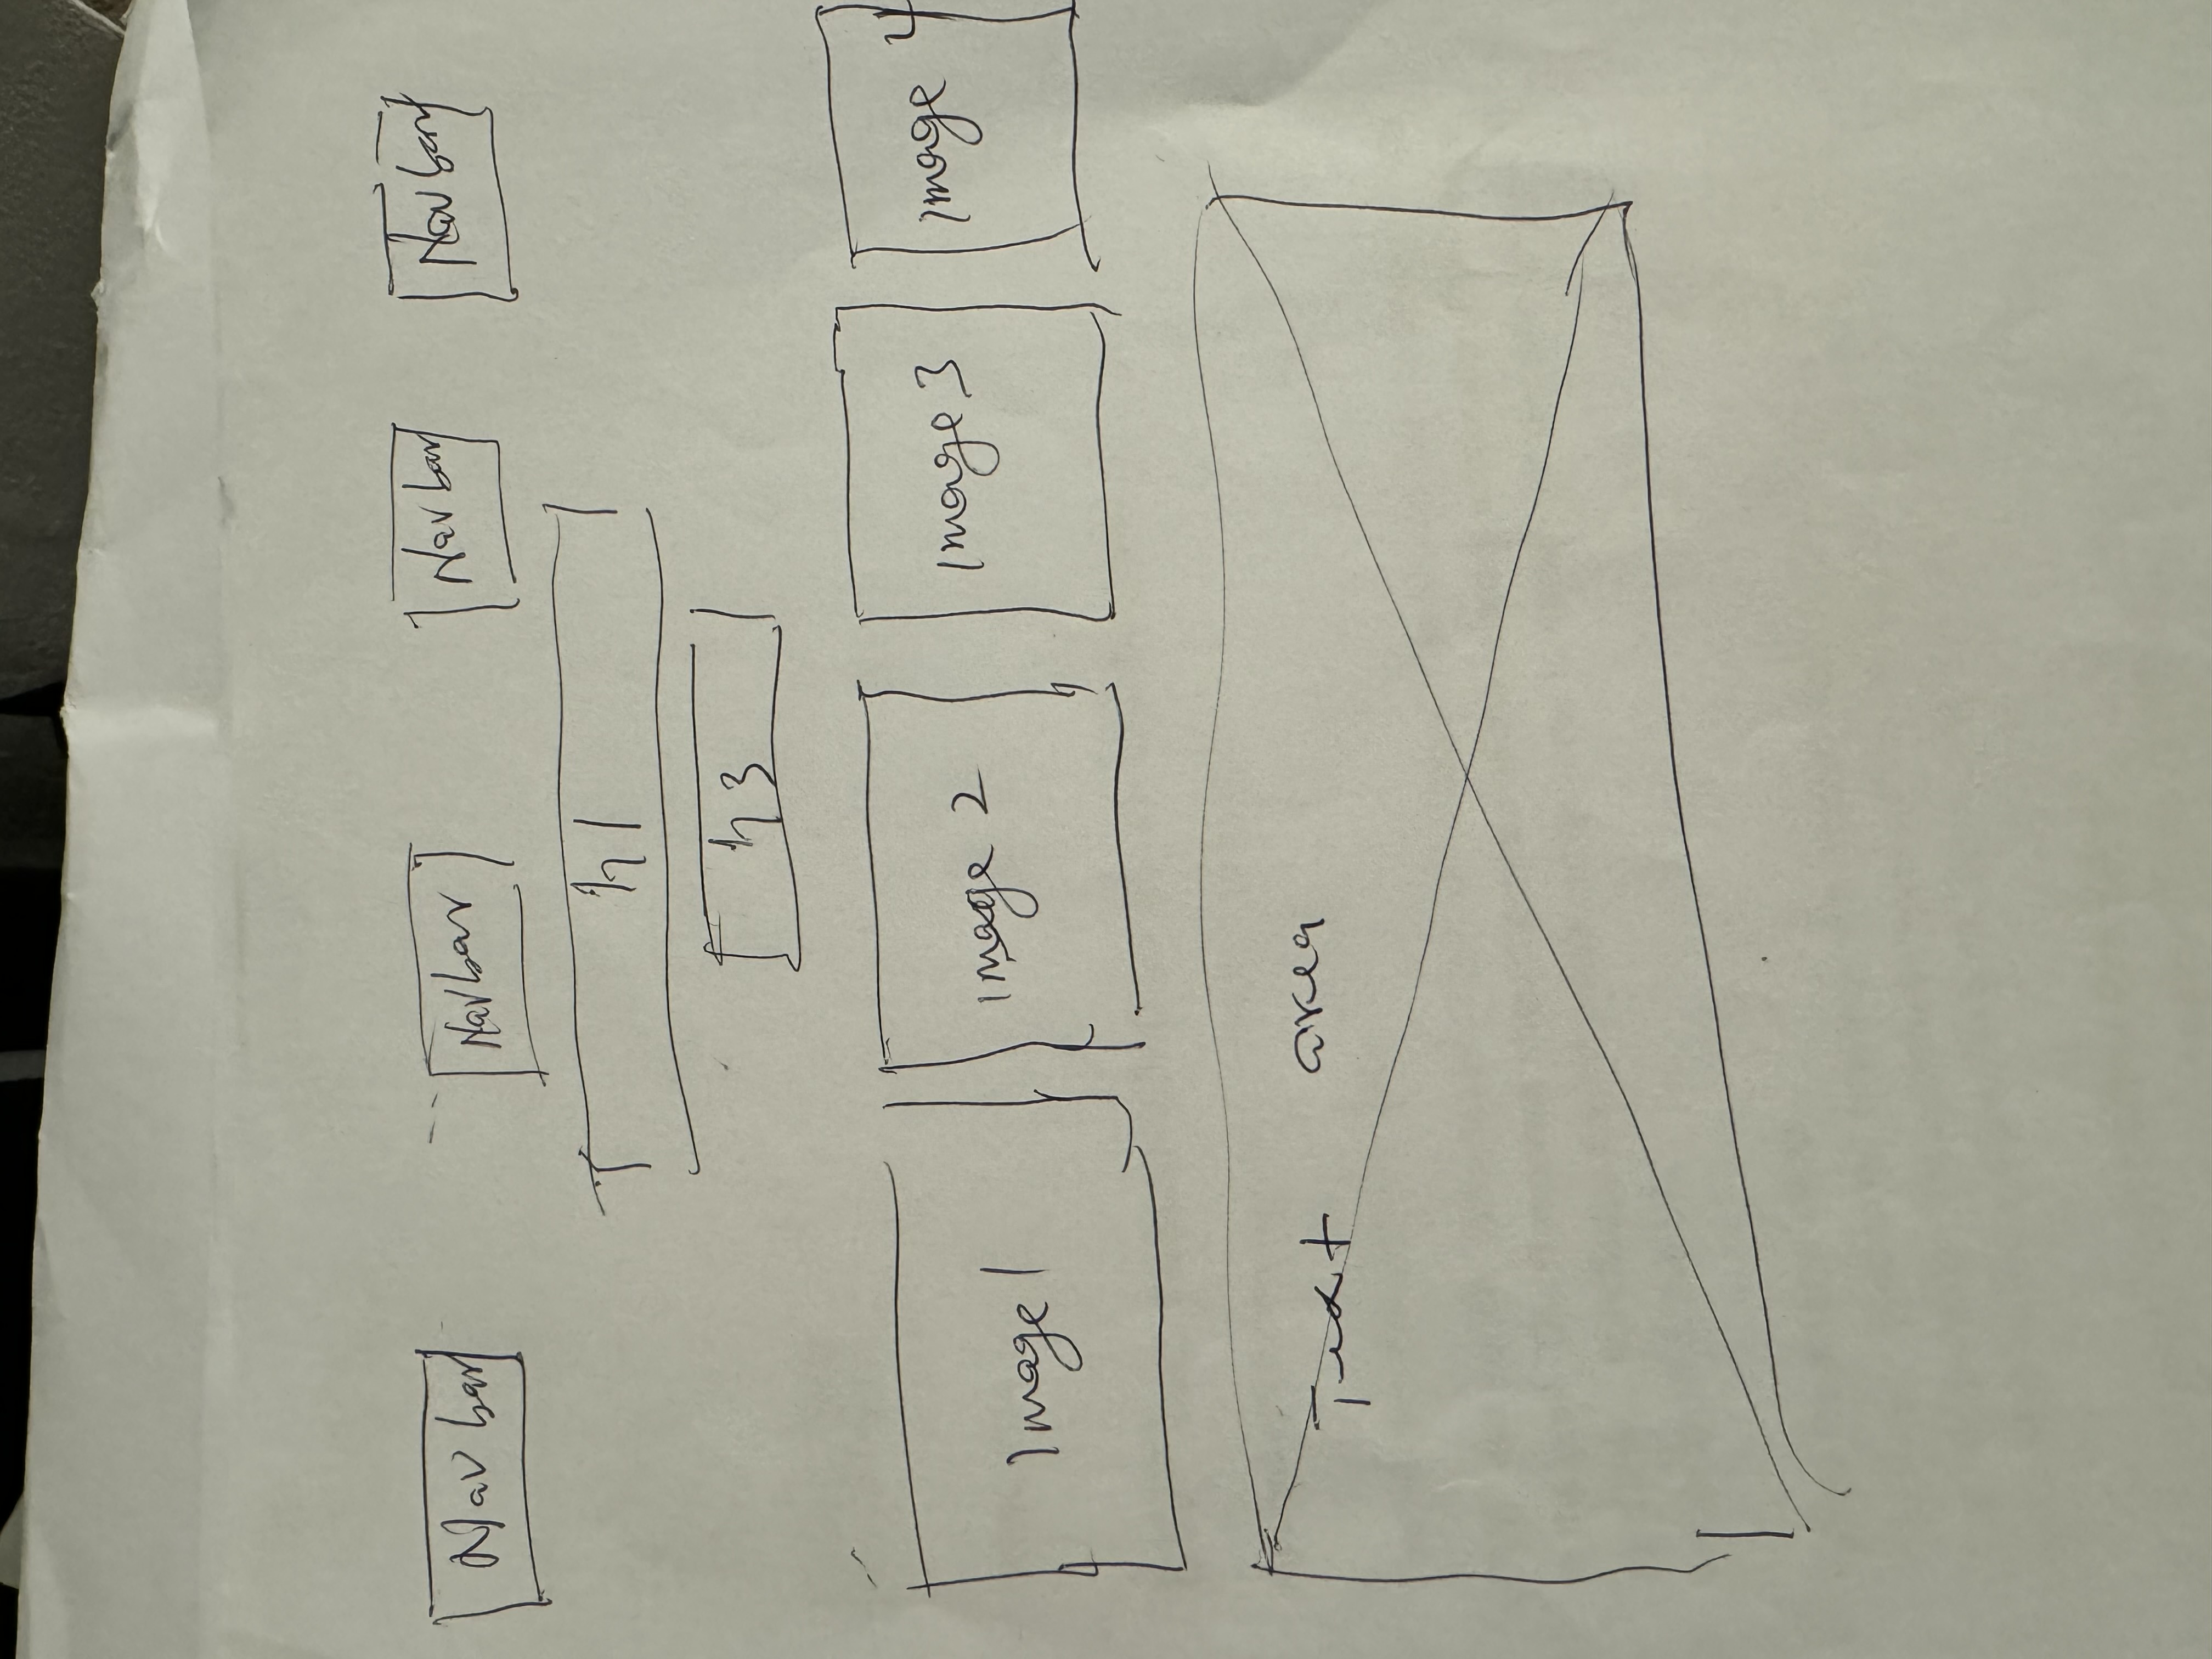 Nav bar Navbar Nav bar Nav bar
h1
h3
Image 1 Image 2 Image 3 Image 4
Text area